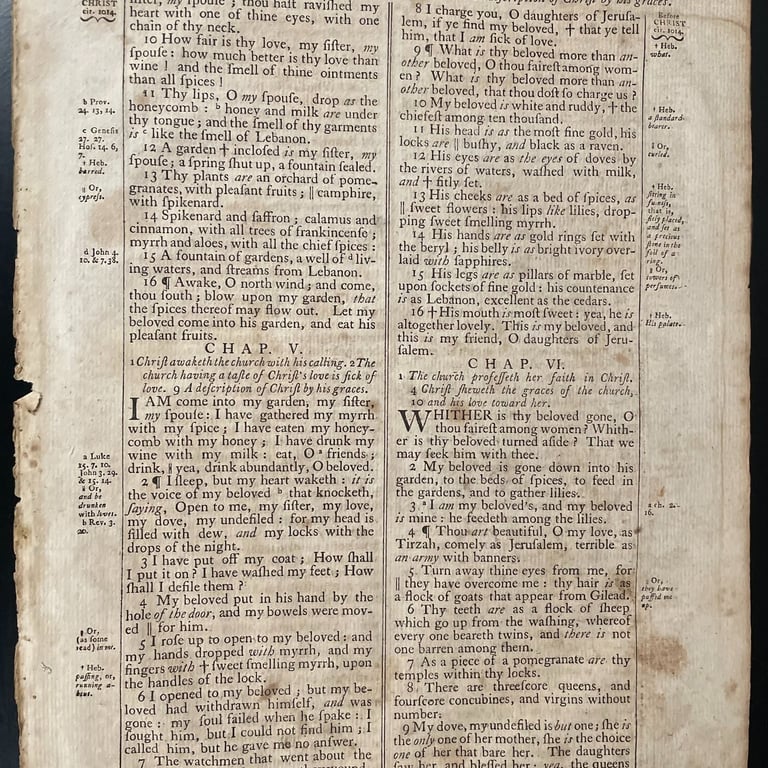 CHRIST
cir. 1014.
b Prov.
24. 13, 14.
c Geneſis
27. 27.
Hoſ. 14. 6,
7.
† Heb.
barred.
‖ Or,
cypreſs.
d John 4.
10. & 7. 38.
a Luke
15. 7, 10.
John 3. 29.
& 15. 14.
‖ Or,
and be
drunken
with loves.
b Rev. 3.
20.
‖ Or,
(as ſome
read) in me.
† Heb.
paſſing, or,
running a-
bout.
ſiſter, my ſpouſe; thou haſt raviſhed my
heart with one of thine eyes, with one
chain of thy neck.
10 How fair is thy love, my ſiſter, my
ſpouſe: how much better is thy love than
wine! and the ſmell of thine ointments
than all ſpices!
11 Thy lips, O my ſpouſe, drop as the
honeycomb: b honey and milk are under
thy tongue; and the ſmell of thy garments
is c like the ſmell of Lebanon.
12 A garden † incloſed is my ſiſter, my
ſpouſe; a ſpring ſhut up, a fountain ſealed.
13 Thy plants are an orchard of pome-
granates, with pleaſant fruits; ‖ camphire,
with ſpikenard.
14 Spikenard and ſaffron; calamus and
cinnamon, with all trees of frankincenſe;
myrrh and aloes, with all the chief ſpices:
15 A fountain of gardens, a well of d liv-
ing waters, and ſtreams from Lebanon.
16 ¶ Awake, O north wind; and come,
thou ſouth; blow upon my garden, that
the ſpices thereof may flow out. Let my
beloved come into his garden, and eat his
pleaſant fruits.
CHAP. V.
1 Chriſt awaketh the church with his calling. 2 The
church having a taſte of Chriſt's love is ſick of
love. 9 A deſcription of Chriſt by his graces.
I AM come into my garden, my ſiſter,
my ſpouſe: I have gathered my myrrh
with my ſpice; I have eaten my honey-
comb with my honey; I have drunk my
wine with my milk: eat, O a friends;
drink, ‖ yea, drink abundantly, O beloved.
2 ¶ I ſleep, but my heart waketh: it is
the voice of my beloved b that knocketh,
ſaying, Open to me, my ſiſter, my love,
my dove, my undefiled: for my head is
filled with dew, and my locks with the
drops of the night.
3 I have put off my coat; How ſhall
I put it on? I have waſhed my feet; How
ſhall I defile them?
4 My beloved put in his hand by the
hole of the door, and my bowels were mov-
ed ‖ for him.
5 I roſe up to open to my beloved: and
my hands dropped with myrrh, and my
fingers with † ſweet ſmelling myrrh, upon
the handles of the lock.
6 I opened to my beloved; but my be-
loved had withdrawn himſelf, and was
gone: my ſoul failed when he ſpake: I
ſought him, but I could not find him; I
called him, but he gave me no anſwer.
7 The watchmen that went about the
deſcription of Chriſt by his graces.
8 I charge you, O daughters of Jeruſa-
lem, if ye find my beloved, † that ye tell
him, that I am ſick of love.
9 ¶ What is thy beloved more than an-
other beloved, O thou faireſt among wom-
en? What is thy beloved more than an-
other beloved, that thou doſt ſo charge us?
10 My beloved is white and ruddy, † the
chiefeſt among ten thouſand.
11 His head is as the moſt fine gold, his
locks are ‖ buſhy, and black as a raven.
12 His eyes are as the eyes of doves by
the rivers of waters, waſhed with milk,
and † fitly ſet.
13 His cheeks are as a bed of ſpices, as
‖ ſweet flowers: his lips like lilies, drop-
ping ſweet ſmelling myrrh.
14 His hands are as gold rings ſet with
the beryl; his belly is as bright ivory over-
laid with ſapphires.
15 His legs are as pillars of marble, ſet
upon ſockets of fine gold: his countenance
is as Lebanon, excellent as the cedars.
16 † His mouth is moſt ſweet: yea, he is
altogether lovely. This is my beloved, and
this is my friend, O daughters of Jeru-
ſalem.
CHAP. VI.
1 The church profeſſeth her faith in Chriſt.
4 Chriſt ſheweth the graces of the church,
10 and his love toward her.
WHITHER is thy beloved gone, O
thou faireſt among women? Whith-
er is thy beloved turned aſide? That we
may ſeek him with thee.
2 My beloved is gone down into his
garden, to the beds of ſpices, to feed in
the gardens, and to gather lilies.
3 a I am my beloved's, and my beloved
is mine: he feedeth among the lilies.
4 ¶ Thou art beautiful, O my love, as
Tirzah, comely as Jeruſalem, terrible as
an army with banners.
5 Turn away thine eyes from me, for
‖ they have overcome me: thy hair is as
a flock of goats that appear from Gilead.
6 Thy teeth are as a flock of ſheep
which go up from the waſhing, whereof
every one beareth twins, and there is not
one barren among them.
7 As a piece of a pomegranate are thy
temples within thy locks.
8 There are threeſcore queens, and
fourſcore concubines, and virgins without
number.
9 My dove, my undefiled is but one; ſhe is
the only one of her mother, ſhe is the choice
one of her that bare her. The daughters
ſaw her, and bleſſed her; yea, the queens
Before
CHRIST
cir. 1014.
† Heb.
what.
† Heb.
a ſtandard-
bearer.
‖ Or,
curled.
† Heb.
ſitting in
fulneſs,
that is,
fitly placed,
and ſet as
a precious
ſtone in the
foil of a
ring.
‖ Or,
towers of
perfumes.
† Heb.
His palate.
a ch. 2.
16.
‖ Or,
they have
puffed me
up.